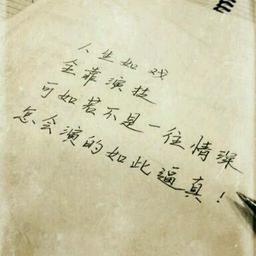 人生如戏
全靠演技
可如若不是一往情深
怎会演的如此逼真！